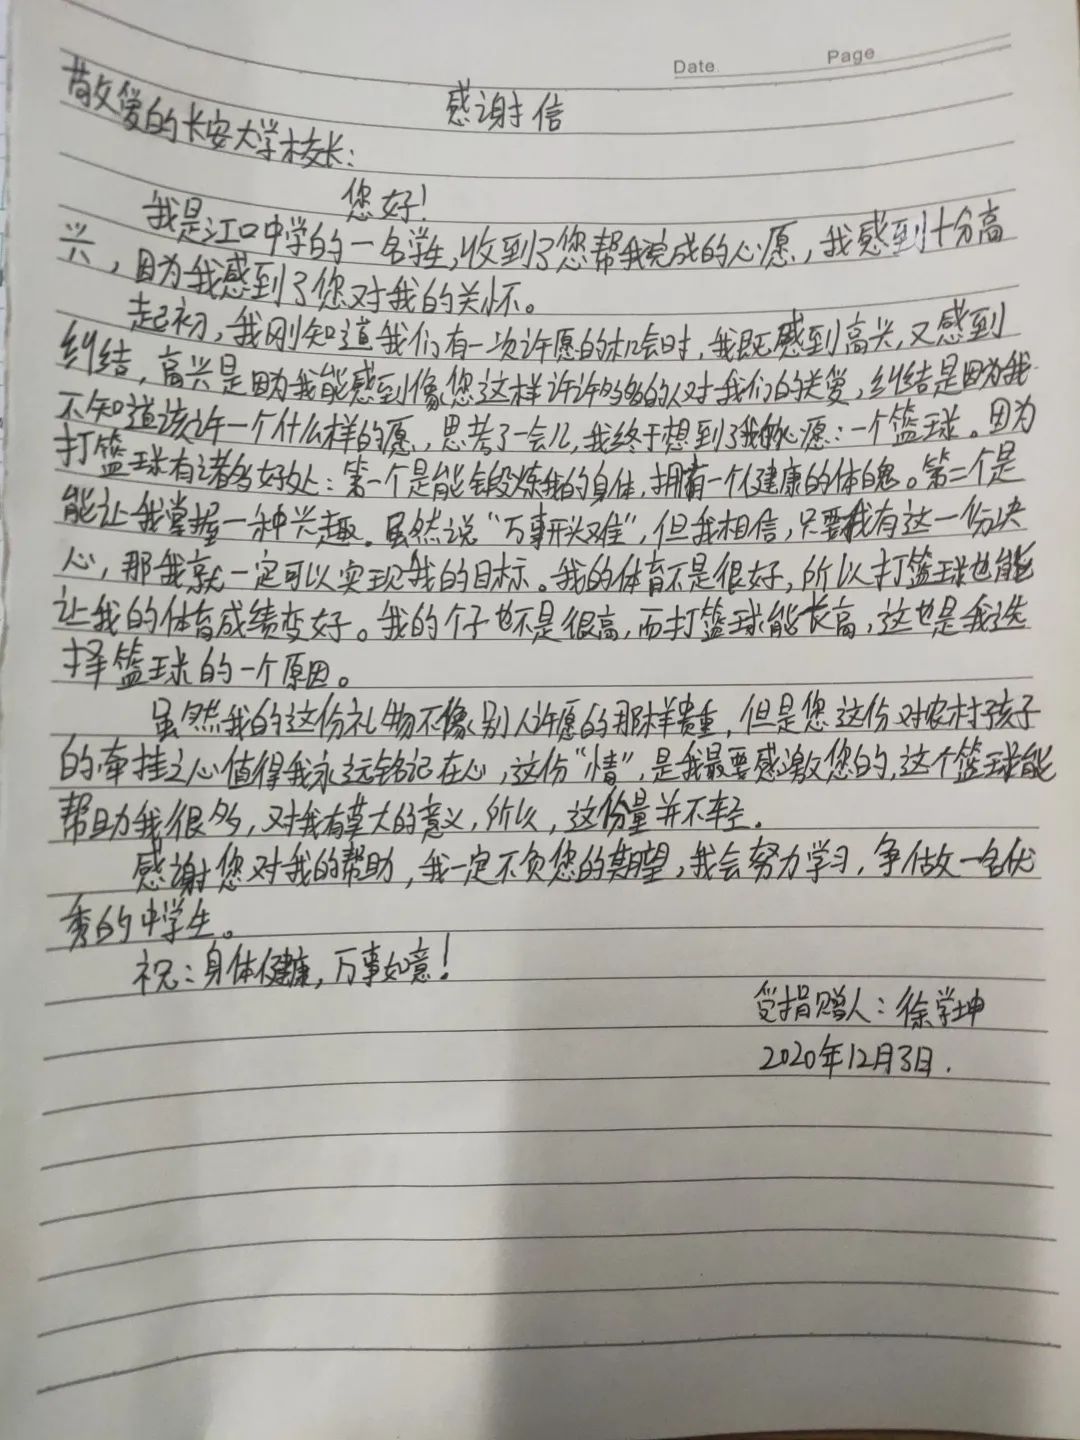 Date Page
感谢信
敬爱的长安大学校长：
您好！
我是江口中学的一名学生，收到了您帮我完成的心愿，我感到十分高
兴，因为我感到了您对我的关怀。
起初，我刚知道我们有一次许愿的机会时，我既感到高兴，又感到
纠结，高兴是因为我能感到像您这样许许多多的人对我们的关爱，纠结是因为我
不知道该许一个什么样的愿，思考了一会儿，我终于想到了我的心愿：一个篮球。因为
打篮球有诸多好处：第一个是能锻炼我的身体，拥有一个健康的体魄。第二个是
能让我掌握一种兴趣。虽然说“万事开头难”，但我相信，只要我有这一份决
心，那我就一定可以实现我的目标。我的体育不是很好，所以打篮球也能
让我的体育成绩变好。我的个子也不是很高，而打篮球能长高，这也是我选
择篮球的一个原因。
虽然我的这份礼物不像别人许愿的那样贵重，但是您这份对农村孩子
的牵挂之心值得我永远铭记在心，这份“情”，是我最要感激您的，这个篮球能
帮助我很多，对我有莫大的意义，所以，这份量并不轻。
感谢您对我的帮助，我一定不负您的期望，我会努力学习，争做一名优
秀的中学生。
祝：身体健康，万事如意！
受捐赠人：徐学坤
2020年12月3日.